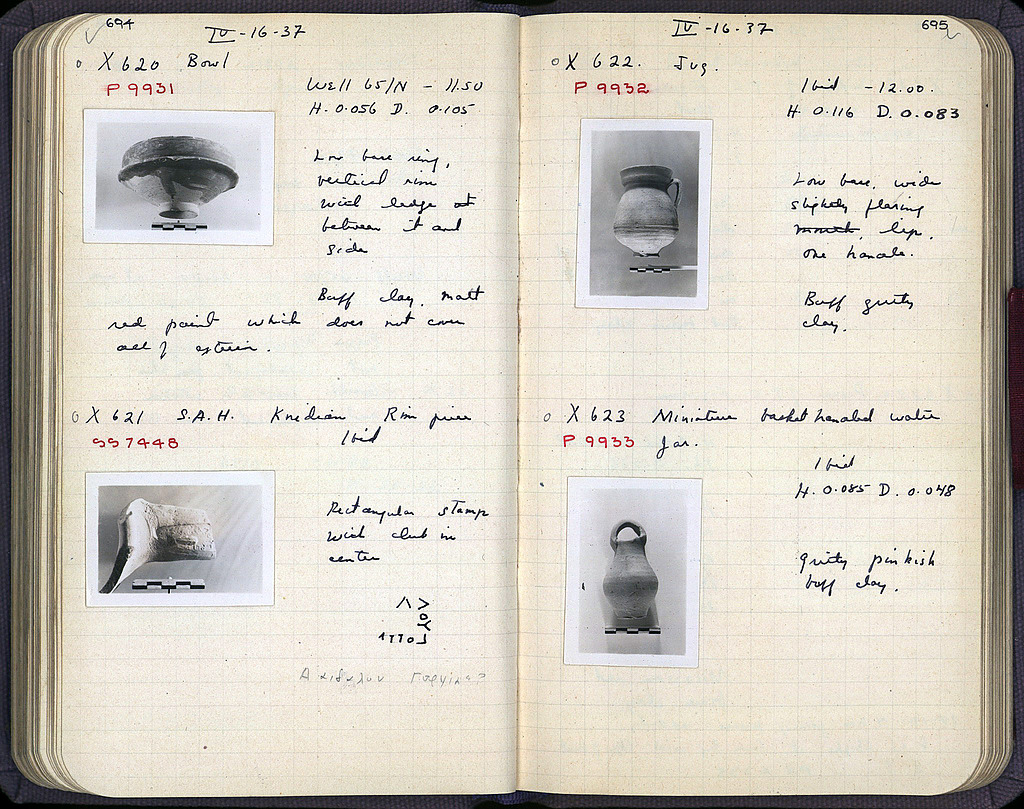 694
IV-16-37
X 620 Bowl
P 9931
Well 65/N - 11.50
H. 0.056 D. 0.105
Low base ring,
vertical rim
with ledge at
between it and
side
Buff clay, matt
red paint which does not cover
all of exterior.
X 621 S.A.H. Knidian Rim piece
SS 7448
Ibid
Rectangular stamp
with club in
center
695
IV-16-37
X 622. Jug.
P 9932
Ibid -12.00.
H. 0.116 D. 0.083
Low base, wide
slightly flaring
mouth, lip.
one handle.
Buff gritty
clay.
X 623 Miniature basket handled water
P 9933 Jar.
Ibid
H. 0.085 D. 0.048
gritty pinkish
buff clay.